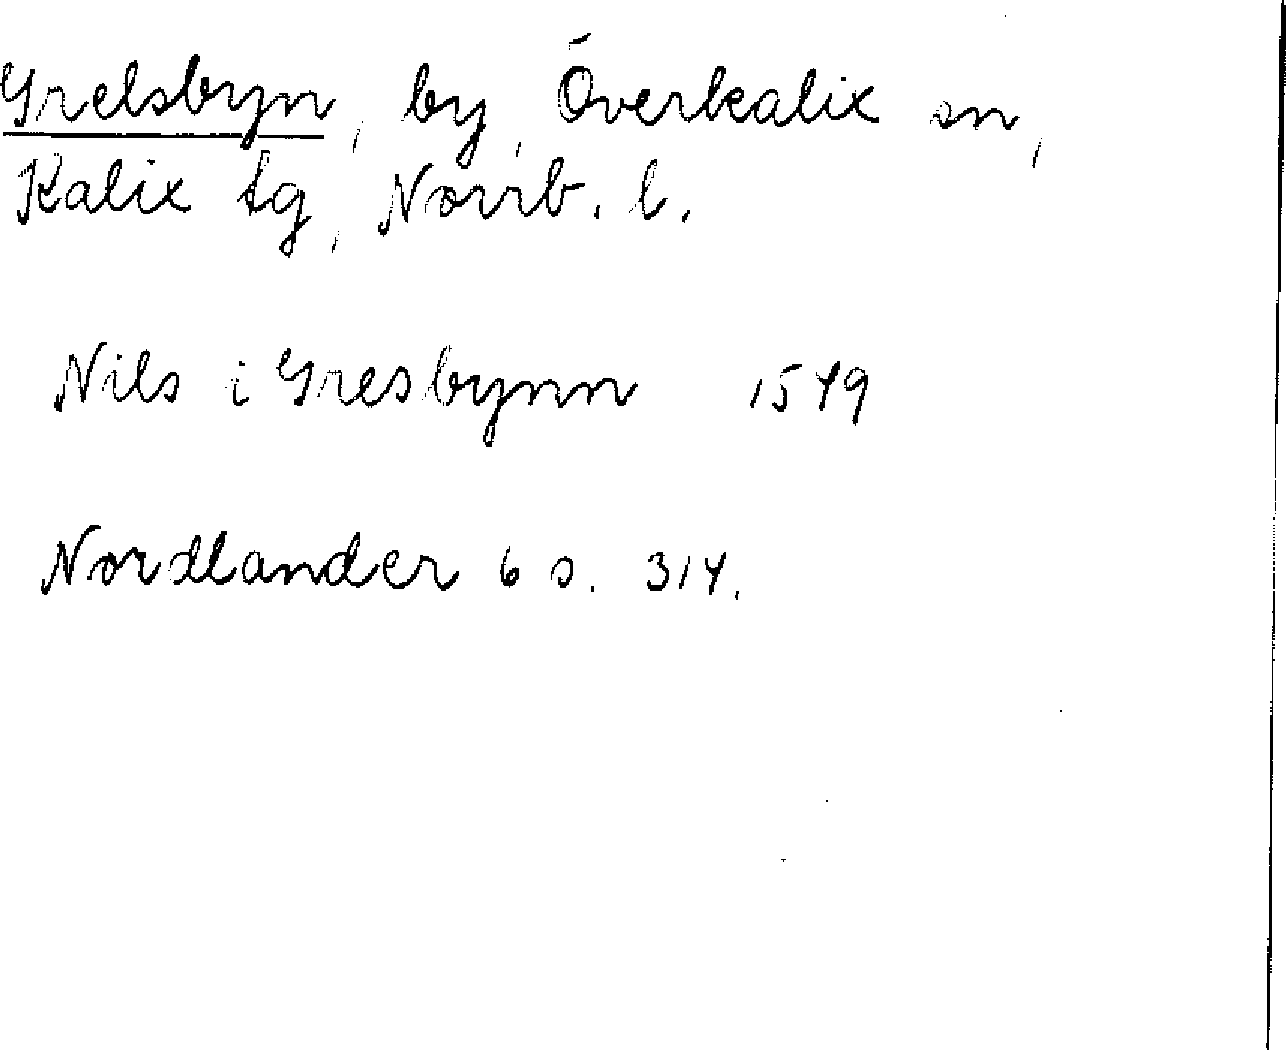 Grelsbyn, by, Överkalix sn,
Kalix tg, Norrb. l.
Nils i Gresbynn 1549
Nordlander 6 s. 314.